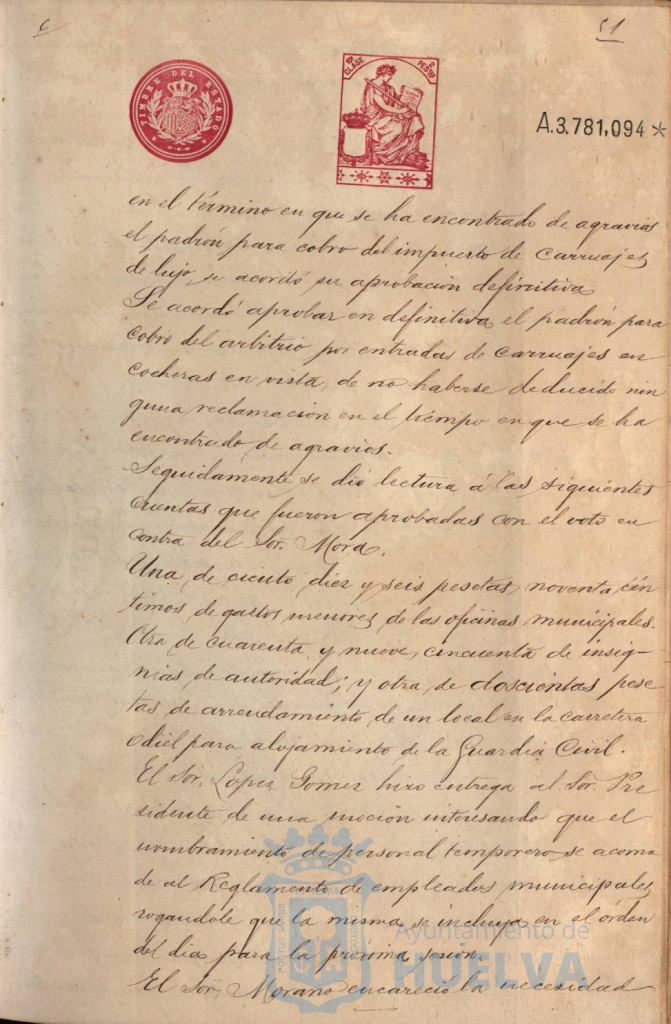 6
51
TIMBRE DEL ESTADO
CLASE
PESTAS
A.3.781,094*
en el término en que se ha encontrado de agravios
el padrón para cobro del impuesto de carruajes
de lujo, se acordó su aprobación definitiva.
Se acordó aprobar en definitiva el padrón para
cobro del arbitrio por entradas de carruajes en
cocheras en vista, de no haberse deducido nin
guna reclamación en el tiempo en que se ha
encontrado de agravios.
Seguidamente se dió lectura á las siguientes
cuentas que fueron aprobadas con el voto en
contra del Sor. Mora.
Una de ciento diez y seis pesetas noventa cén
timos de gastos menores de las oficinas municipales.
Otra de cuarenta y nueve, cincuenta de insig-
nias de autoridad; y otra de doscientas pese
tas de arrendamiento de un local en la carretera
Odiel para alojamiento de la Guardia Civil.
El Sor. Lopez Gomez hizo entrega al Sor. Pre
sidente de una moción interesando que el
nombramiento de personal temporero se acomo
de al Reglamento de empleados municipales
rogandole que la misma se incluya en el órden
del dia para la próxima sesión.
El Sor. Morano encareció la necesidad
Ayuntamiento de
HUELVA